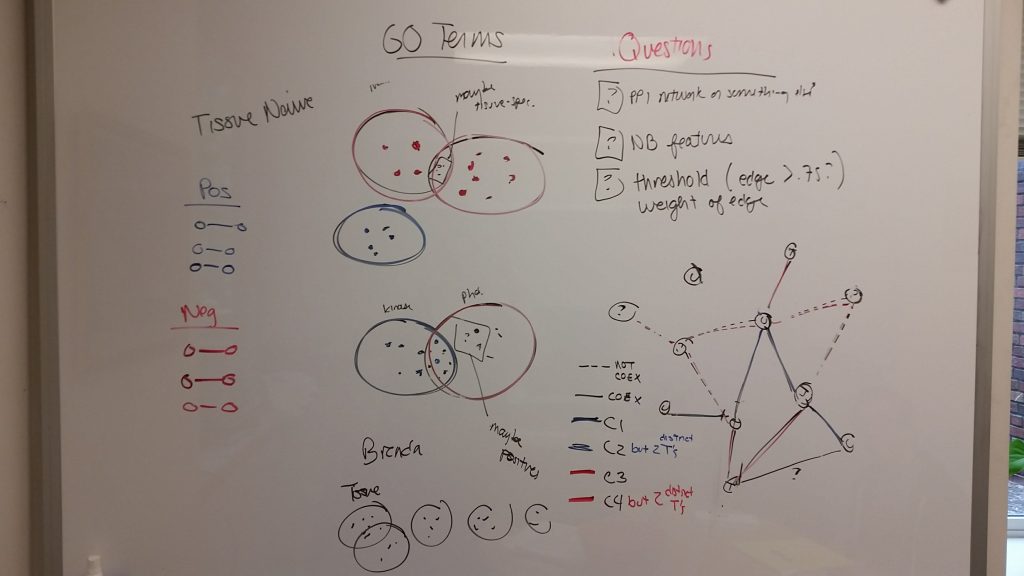 GO Terms
Questions
Tissue Naive
maybe
tissue-spec.
? PPI network or something else?
? NB features
? threshold (edge >.75?)
weight of edge
Pos
Neg
kinase
phos.
maybe
Positives
Brenda
Tissue
NOT
COEX
COEX
C1
C2 but 2 distinct T's
C3
C4 but 2 distinct T's
?
?